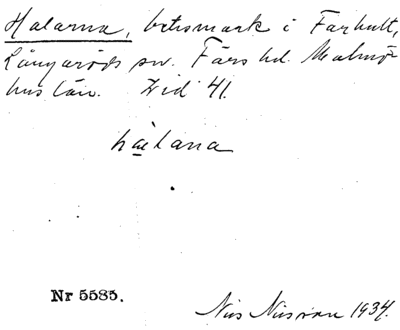 Halarna, betesmark i Farhult,
Långaröds sn. Färs hd. Malmö-
hus län. Zid 41.
hælana
Nr 5585.
Nils Nilsson 1934.